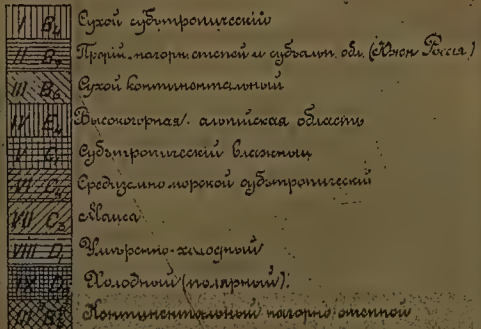 I B₄ Сухой субтропическiй
II B₂ нагорн. степей и субальп. обл. (Южн Россiя)
III B₃ Сухой континентальный
IV E₄ Высокогорная альпiйская область
V C₁ Субтропическiй влажный
VI C₄ Средиземно-морской субтропическiй
VII C₃ Маиса
VIII D₁ Умѣренно-холодный
IX D₂ Холодный (полярный)
III Континентальный нагорно степной